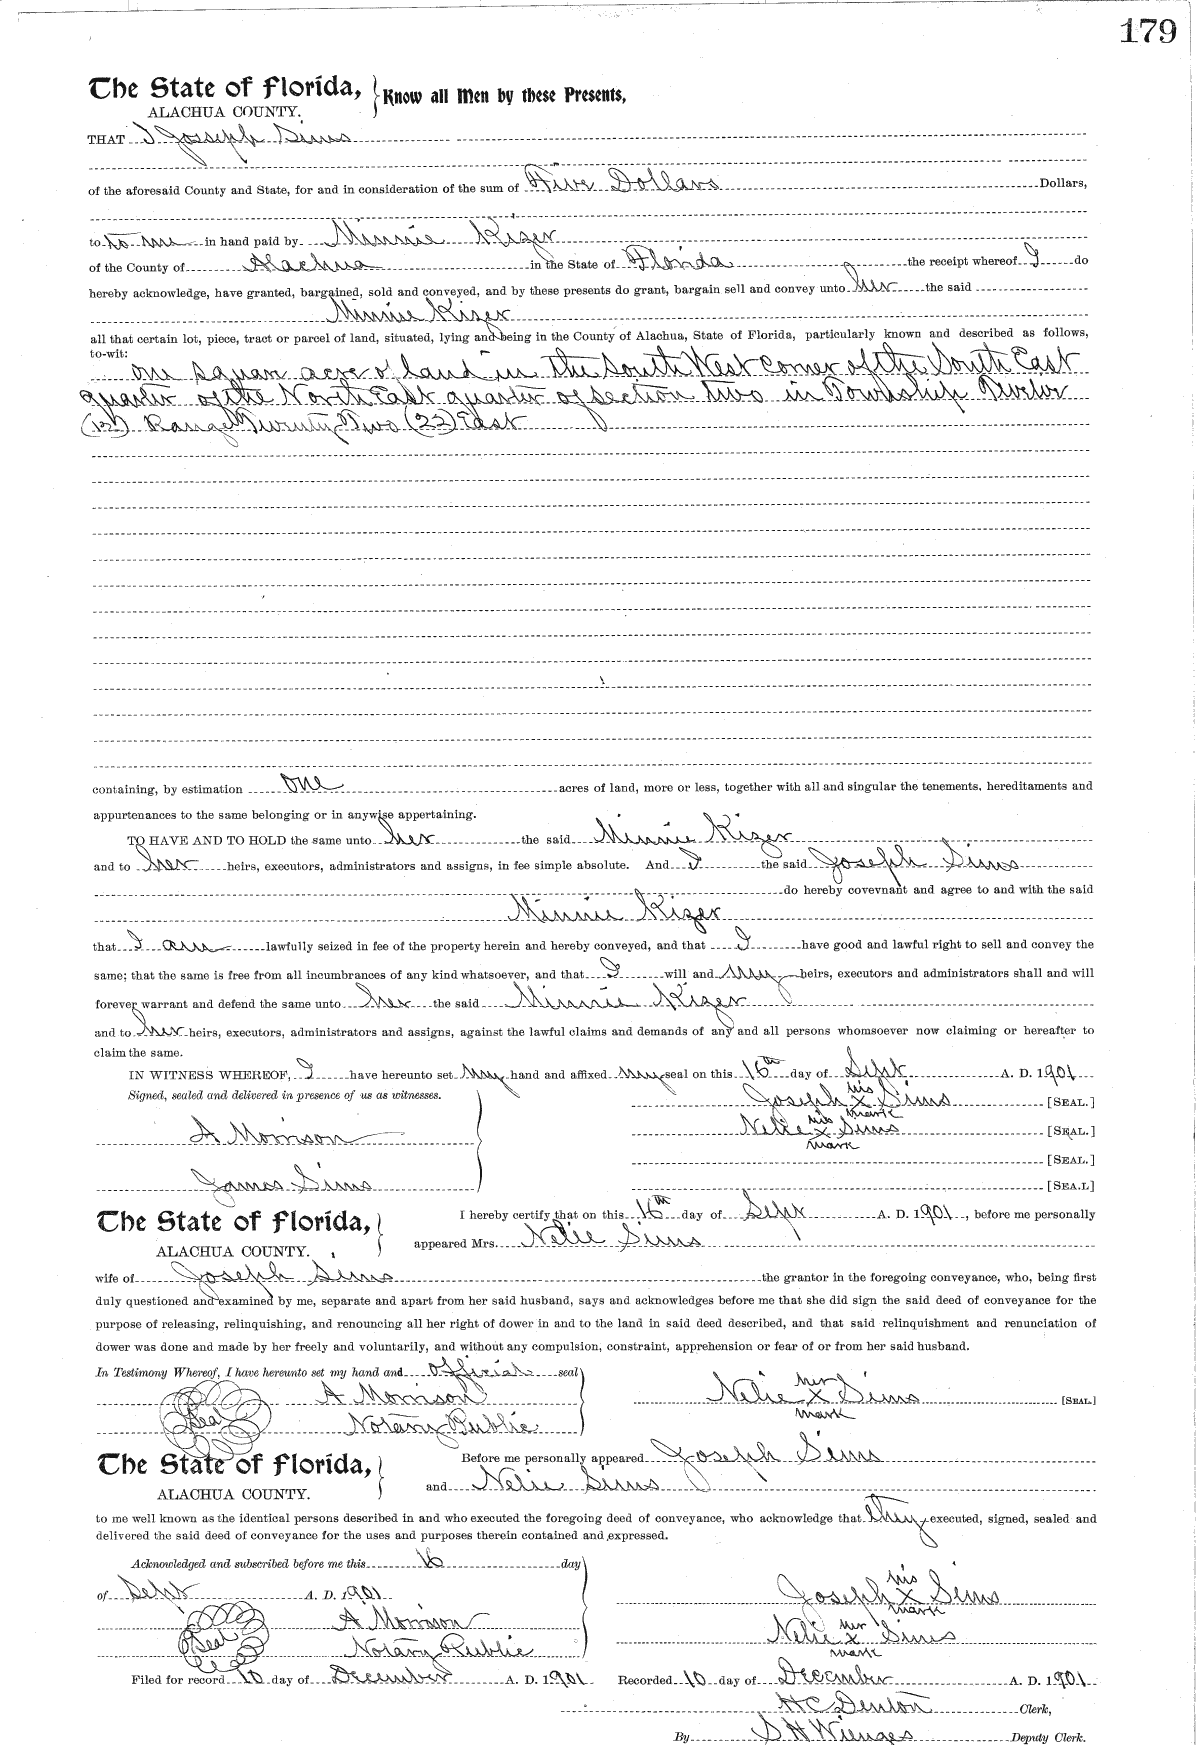 179
The State of Florida, Know all Men by these Presents,
ALACHUA COUNTY.
THAT I Joseph Sims
of the aforesaid County and State, for and in consideration of the sum of Five Dollars Dollars,
to to me in hand paid by Minnie Kizer
of the County of Alachua in the State of Florida the receipt whereof I do
hereby acknowledge, have granted, bargained, sold and conveyed, and by these presents do grant, bargain sell and convey unto her the said
Minnie Kizer
all that certain lot, piece, tract or parcel of land, situated, lying and being in the County of Alachua, State of Florida, particularly known and described as follows,
to-wit:
one square acre of land in the South West corner of the South East
quarter of the North East quarter of section two in Township Twelve
(12) Range Twenty Two (22) East
containing, by estimation one acres of land, more or less, together with all and singular the tenements, hereditaments and
appurtenances to the same belonging or in anywise appertaining.
TO HAVE AND TO HOLD the same unto her the said Minnie Kizer
and to her heirs, executors, administrators and assigns, in fee simple absolute. And I the said Joseph Sims
do hereby covevnant and agree to and with the said
Minnie Kizer
that I am lawfully seized in fee of the property herein and hereby conveyed, and that I have good and lawful right to sell and convey the
same; that the same is free from all incumbrances of any kind whatsoever, and that I will and my heirs, executors and administrators shall and will
forever warrant and defend the same unto her the said Minnie Kizer
and to her heirs, executors, administrators and assigns, against the lawful claims and demands of any and all persons whomsoever now claiming or hereafter to
claim the same.
IN WITNESS WHEREOF, I have hereunto set my hand and affixed my seal on this 16th day of Sept A. D. 1901
Signed, sealed and delivered in presence of us as witnesses.
Joseph his x mark Sims [SEAL.]
A Morrison
Nelie his x mark Sims [SEAL.]
[SEAL.]
James Sims
[SEA.L]
The State of Florida,
ALACHUA COUNTY.
I hereby certify that on this 16th day of Sept A. D. 1901, before me personally
appeared Mrs. Nelie Sims
wife of Joseph Sims the grantor in the foregoing conveyance, who, being first
duly questioned and examined by me, separate and apart from her said husband, says and acknowledges before me that she did sign the said deed of conveyance for the
purpose of releasing, relinquishing, and renouncing all her right of dower in and to the land in said deed described, and that said relinquishment and renunciation of
dower was done and made by her freely and voluntarily, and without any compulsion, constraint, apprehension or fear of or from her said husband.
In Testimony Whereof, I have hereunto set my hand and official seal
A Morrison
Nelie her x mark Sims [SEAL.]
Seal Notary Public
The State of Florida,
ALACHUA COUNTY.
Before me personally appeared Joseph Sims
and Nelie Sims
to me well known as the identical persons described in and who executed the foregoing deed of conveyance, who acknowledge that they executed, signed, sealed and
delivered the said deed of conveyance for the uses and purposes therein contained and expressed.
Acknowledged and subscribed before me this 16 day
of Sept A. D. 1901
Joseph his x mark Sims
A Morrison
Nelie her x mark Sims
Seal Notary Public
Filed for record 10 day of December A. D. 1901 Recorded 10 day of December A. D. 1901
H C Denton Clerk,
By S H Wienges Deputy Clerk.